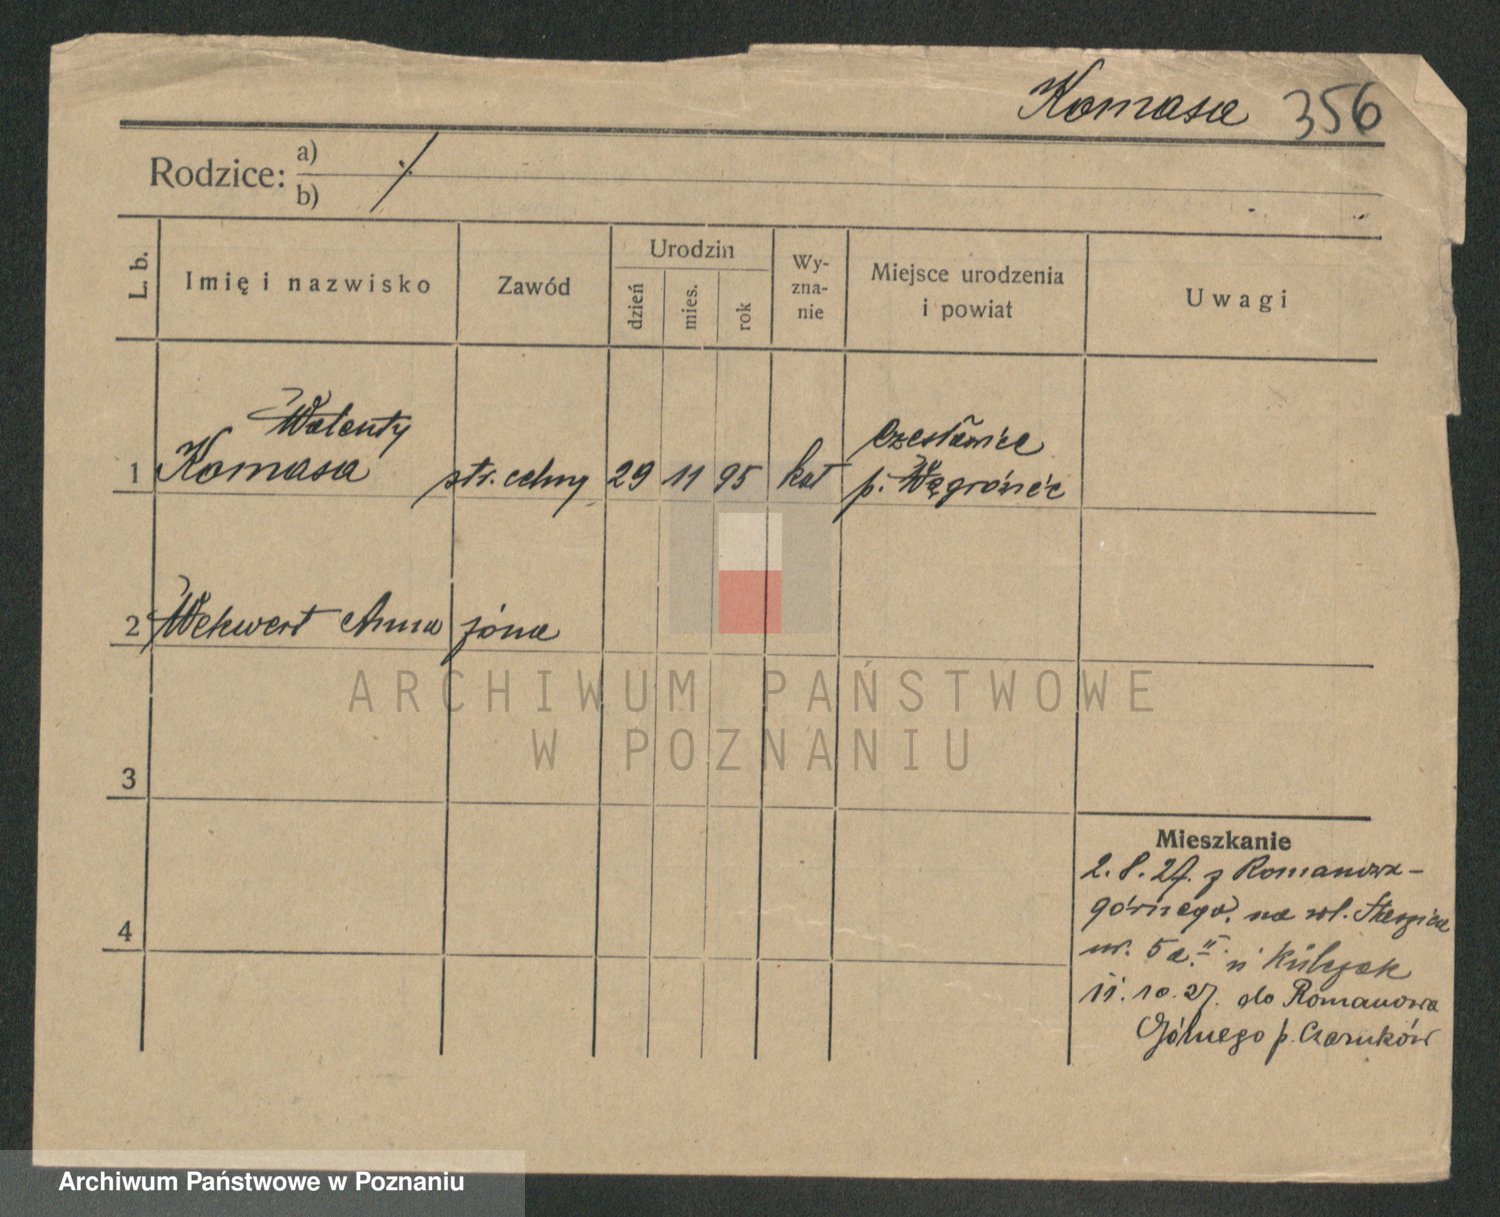 Komasa 356
Rodzice: a) ./.
b)
L. b.
Imię i nazwisko
Zawód
Urodzin
dzień
mies.
rok
Wy-
zna-
nie
Miejsce urodzenia
i powiat
Uwagi
Walenty
1 Komasa str. celny 29 11 95 kat
Czesławice
p. Wągrówiec
2 Wekwert Anna żona
3
4
Mieszkanie
2. 8. 27. z Romanowa-
górnego. na wl.
nr. 5a. II u Kulczak
11. 10. 27. do Romanowa
Górnego p. Czarnków
ARCHIWUM PAŃSTWOWE
W POZNANIU
Archiwum Państwowe w Poznaniu